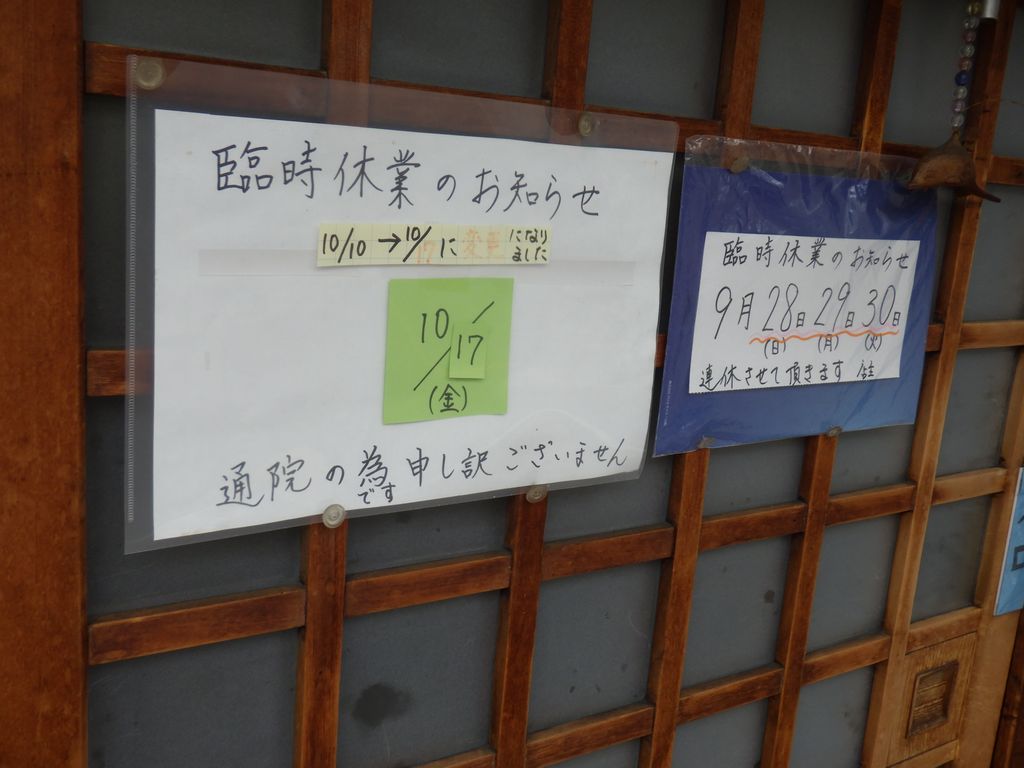 臨時休業のお知らせ
10/10→10/17に変更になりました
10/17
(金)
通院の為です申し訳ございません
臨時休業のお知らせ
9月28日29日30日
(日)(月)(火)
連休させて頂きます